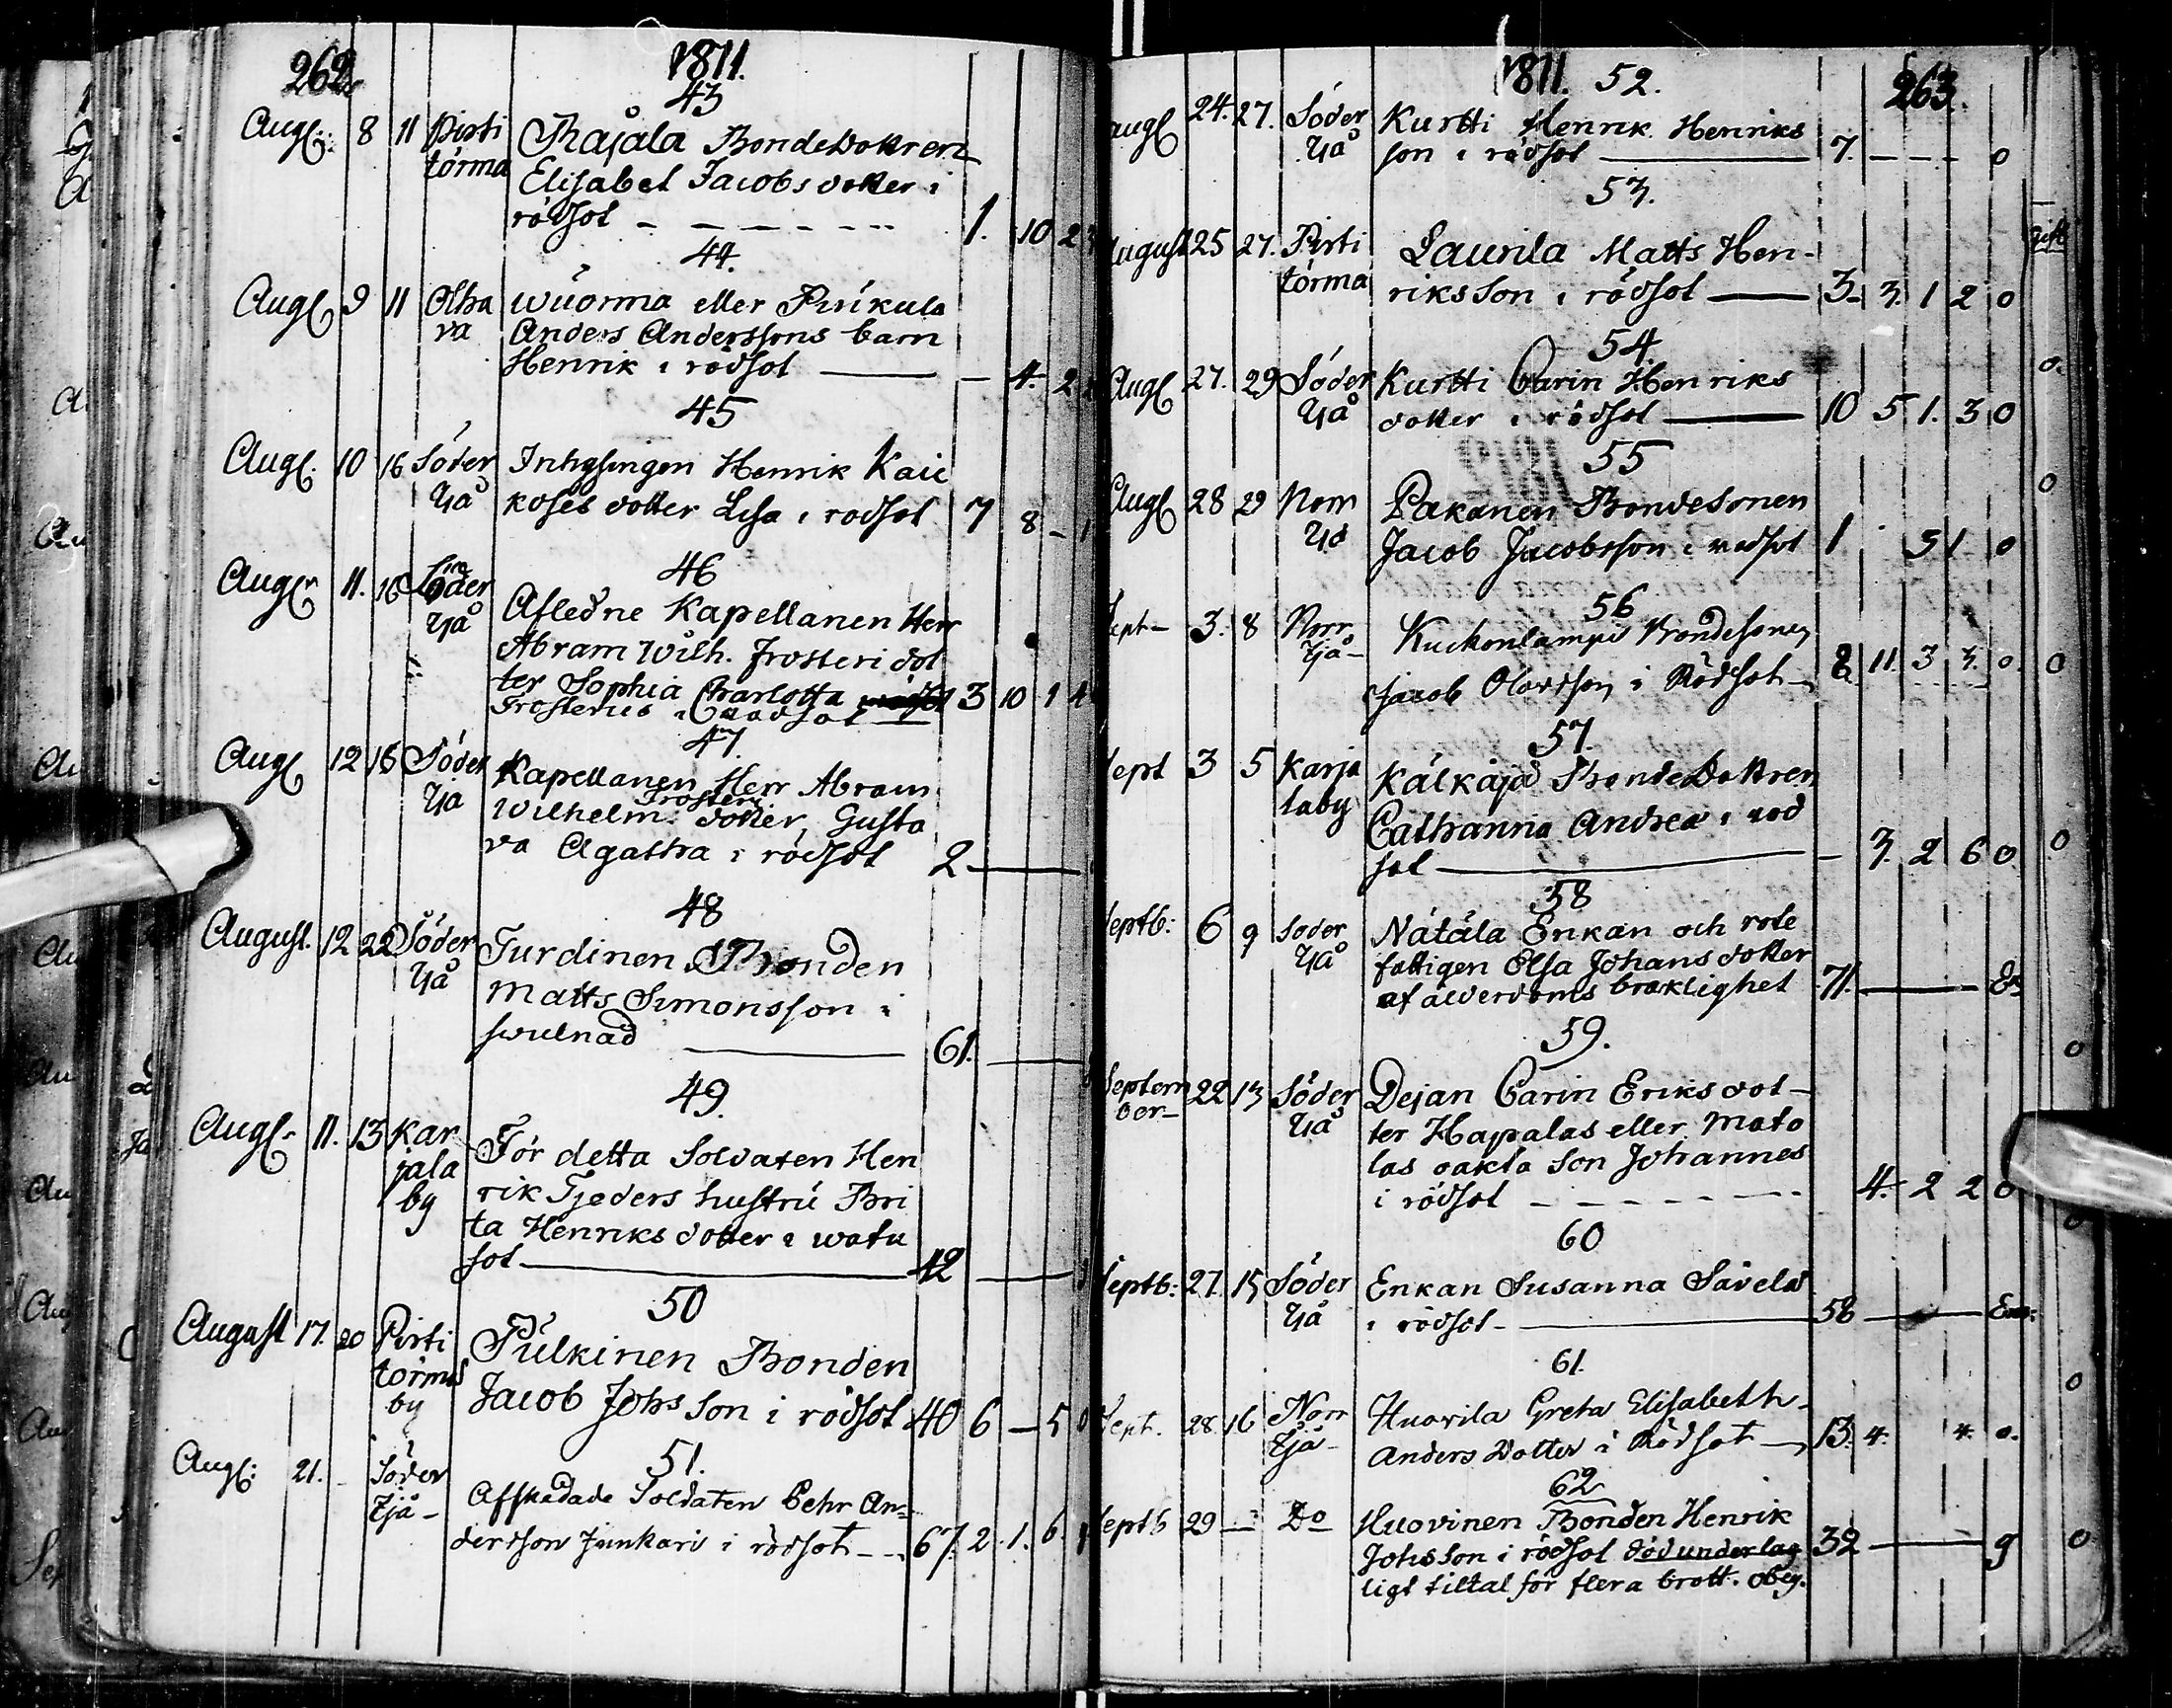 262.
1811.
43
Augl: 8 11 Pirti Thajala Bonde Dottren
törma Elisabet Jacobs dotter i
rödsot - - - - - - 1. 10 2
44.
Augl 9 11 Olha Wuorma eller Purikula
va Anders Anderssons barn
Henrik i rödsot — — 4. 2
45
Augl. 10 16 Söder Inhysingen Henrik Kaic
Ijå koses dotter Lisa i rodsot 7 8 - 1
46
Augl 11. 16 Söder Afledne Kapellanen Herr
Ijå Abram Wilh. Frosteri dot
ter Sophia Charlotta 3 10 1 4
Frosterus i rodsot
47.
Augl 12 16 Söder Kapellanen Herr Abram
Ijå Wilhelm Frosteri dotter, Gusta
va Agatha i rödsot 2 —
48
August. 12 22 Söder Turdinen Bonden
Ijå Matts Simonsson i
swulnad — 61. —
49.
Augl. 11. 13 Kar För detta Soldaten Hen
jala rik Tjeders hustru Bri
by ta Henriks dotter i watu
sot — 42 —
50
August 17. 20 Pirti Pulkinen Bonden
törmä Jacob Johs son i rödsot 40 6 — 5 0
by
51.
Augl: 21. - Söder Afskedade Soldaten Pehr An=
Ijå- dersson Junkari i rödsot - - 67. 2. 1. 6.
1811. 52. 263.
augl 24. 27. Söder Kurtti Henrik Henriks
Ijå son i rödsot — 7. - - - 0
53.
august 25 27. Pirti Laurila Matts Hen-
törma riks Son i rödsot — 3. 3. 1 2 0
54.
Augl 27. 29 Söder Kurtti Carin Henriks
Ijå dotter i rödsot — 10 5 1. 3 0
55
Augl 28 29 Norr Pakanen Bondesonen
Ijå Jacob Jacobsson i rodsot 1 5 1 0
56
Sept- 3. 8 Norr Kuckonlampis Bondesonen
Ijå- Jacob Olovsson i Rödsot- 2. 11. 3 3. 0.
57.
Sept 3 5 Karja Kälkäjä Bonde Dottren
laby Catharina Andrea i rod
sot — — 3. 2 6 0
58
Septb: 6 9 Soder Nätälä Enkan och rote
Ijå fattigen Elsa Johans dotter
af ålderdoms bräklighet 71. —
59.
Septem 22 13 Söder Dejan Carin Eriks dot-
ber- Ijå ter Hapalas eller Mato
las oäkta Son Johannes
i rödsot - - - - - - 4. 2 2 0
60
Septb: 27. 15 Söder Enkan Susanna Sävelä
Ijå i rödsot- — 58 — Enk:
61.
Sept. 28 16 Norr Huovila Greta Elisabeth
Ijå- Anders Dotter i Rödsot — 13. 4. 4. 0.
62
Septb 29 — Do Huovinen Bonden Henrik
Johsson i rödsot död under lag 32 — g
ligt tiltal för flera brott. obeg.